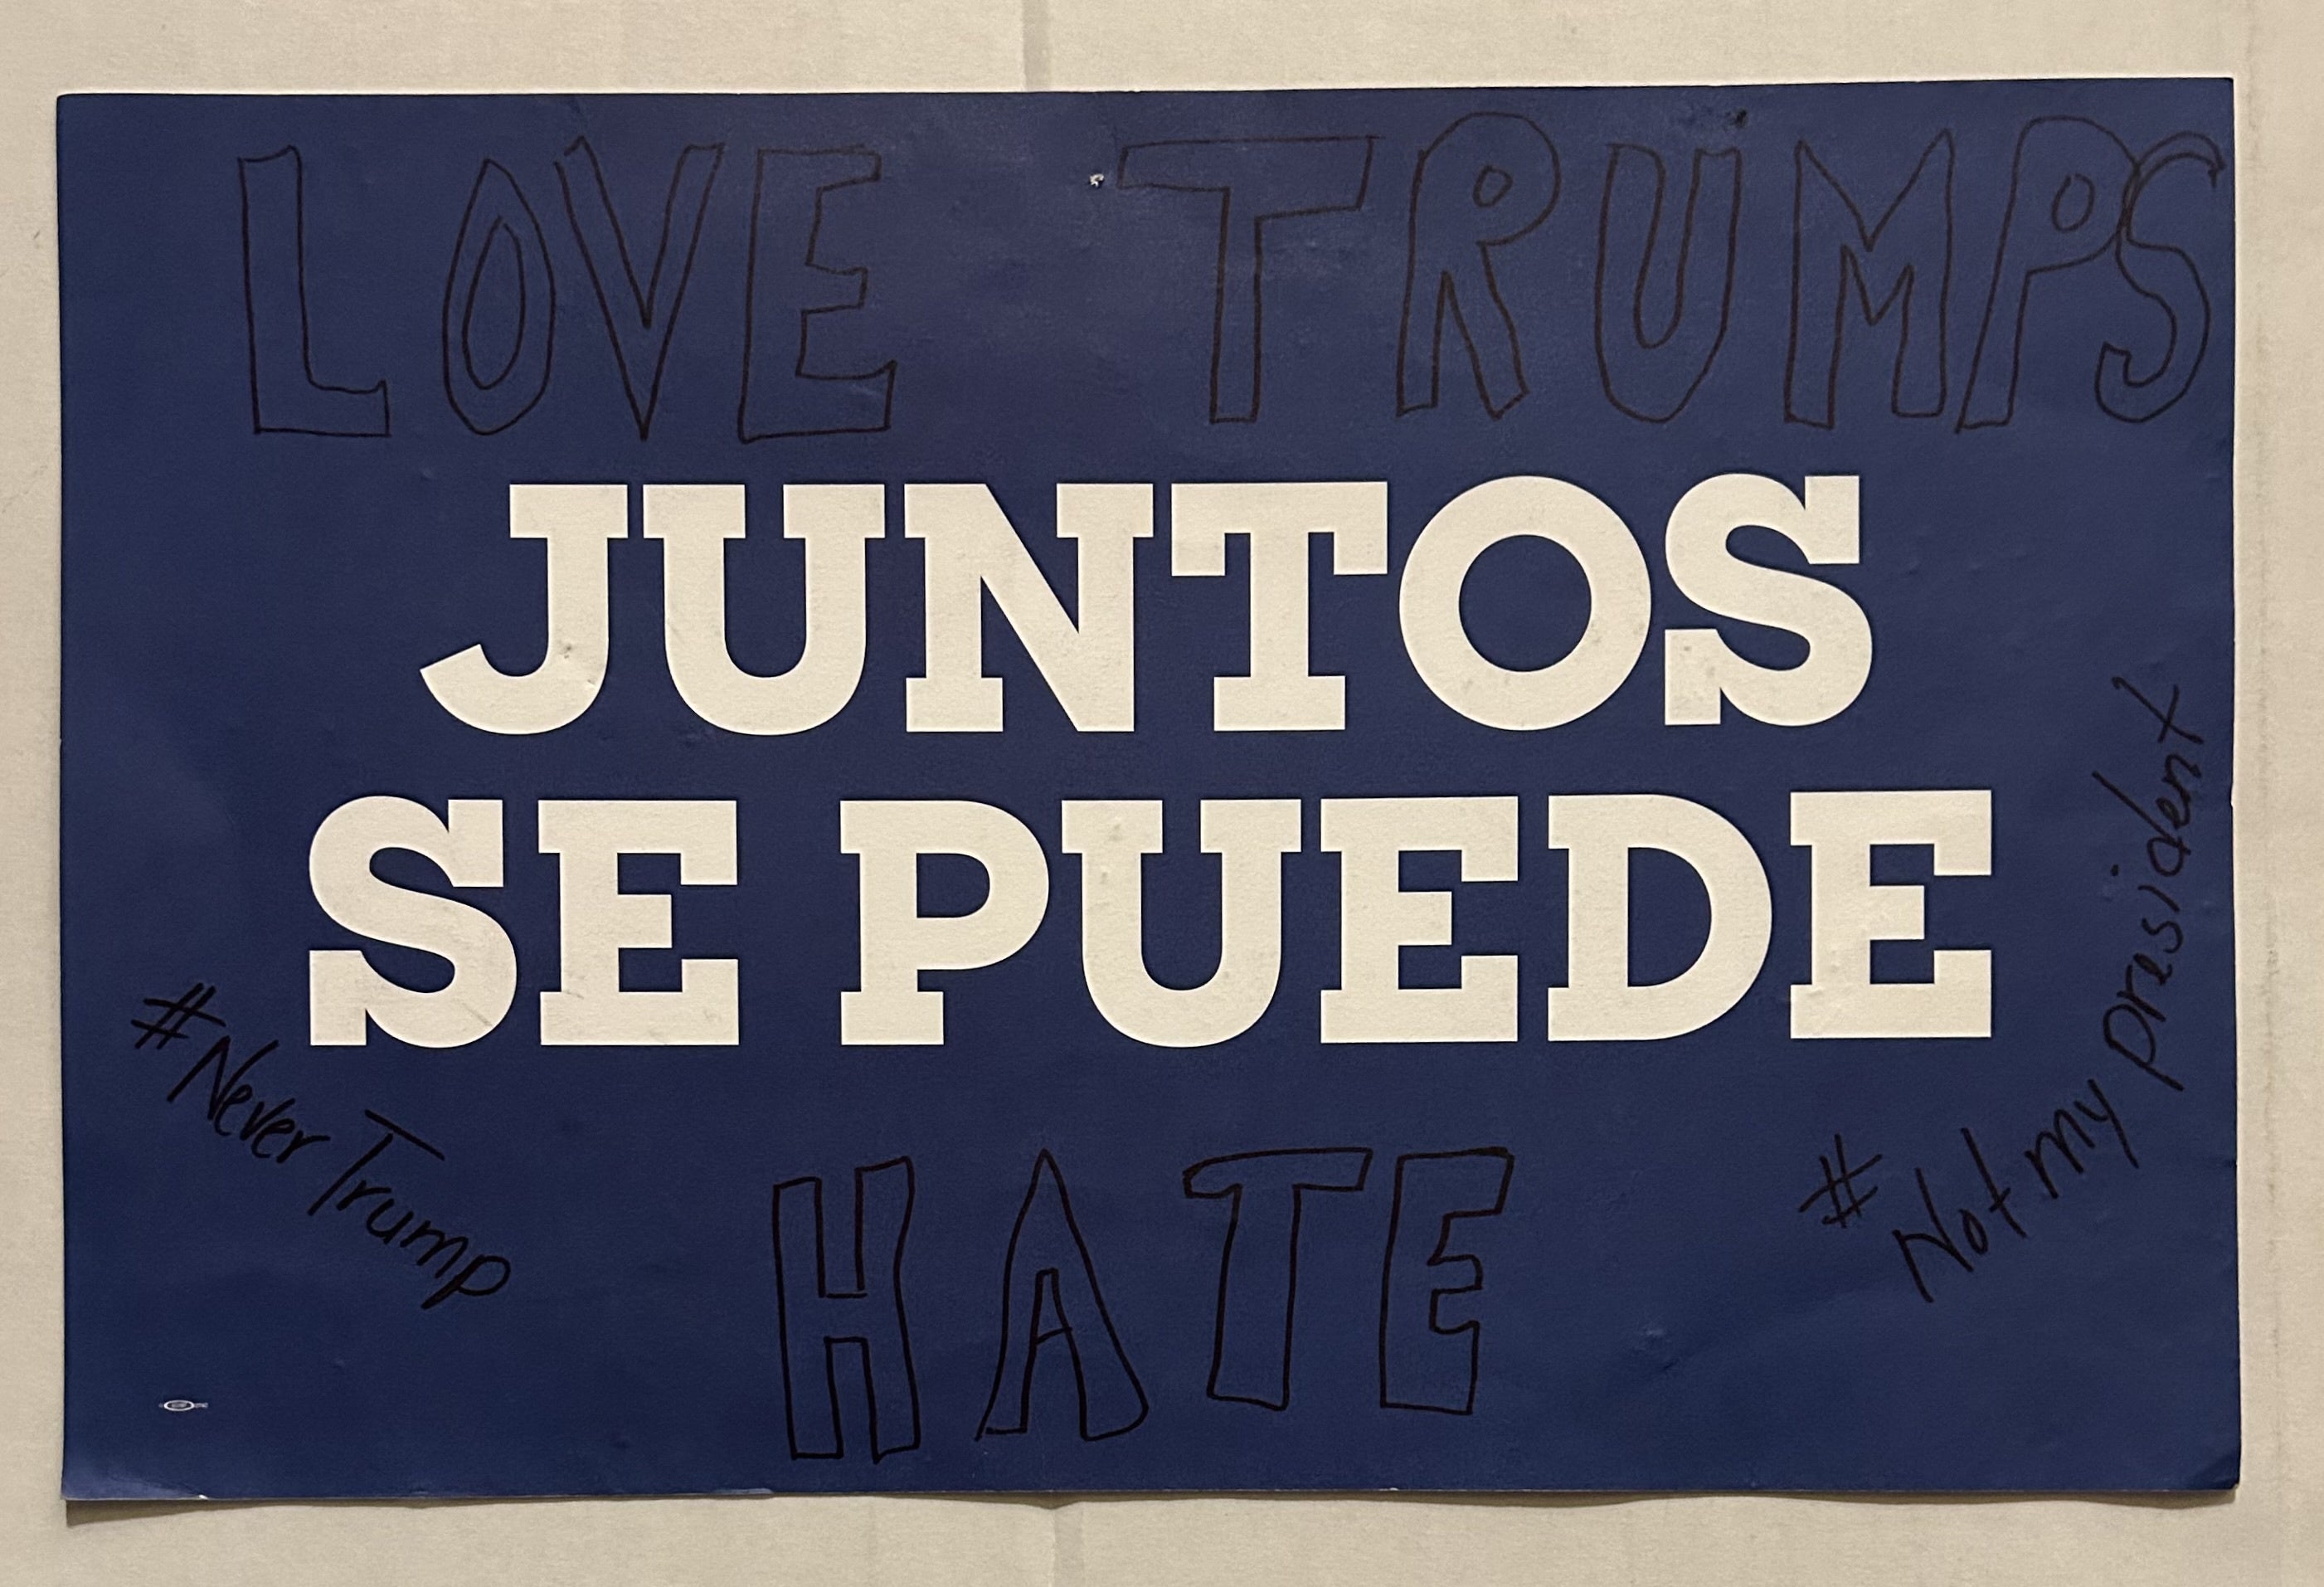 LOVE TRUMPS
JUNTOS
SE PUEDE
#Never Trump
#Not my president
HATE